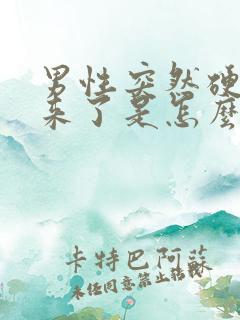 男性突然硬
来了是怎麽
卡特巴阿蘇
未经同意禁止转载